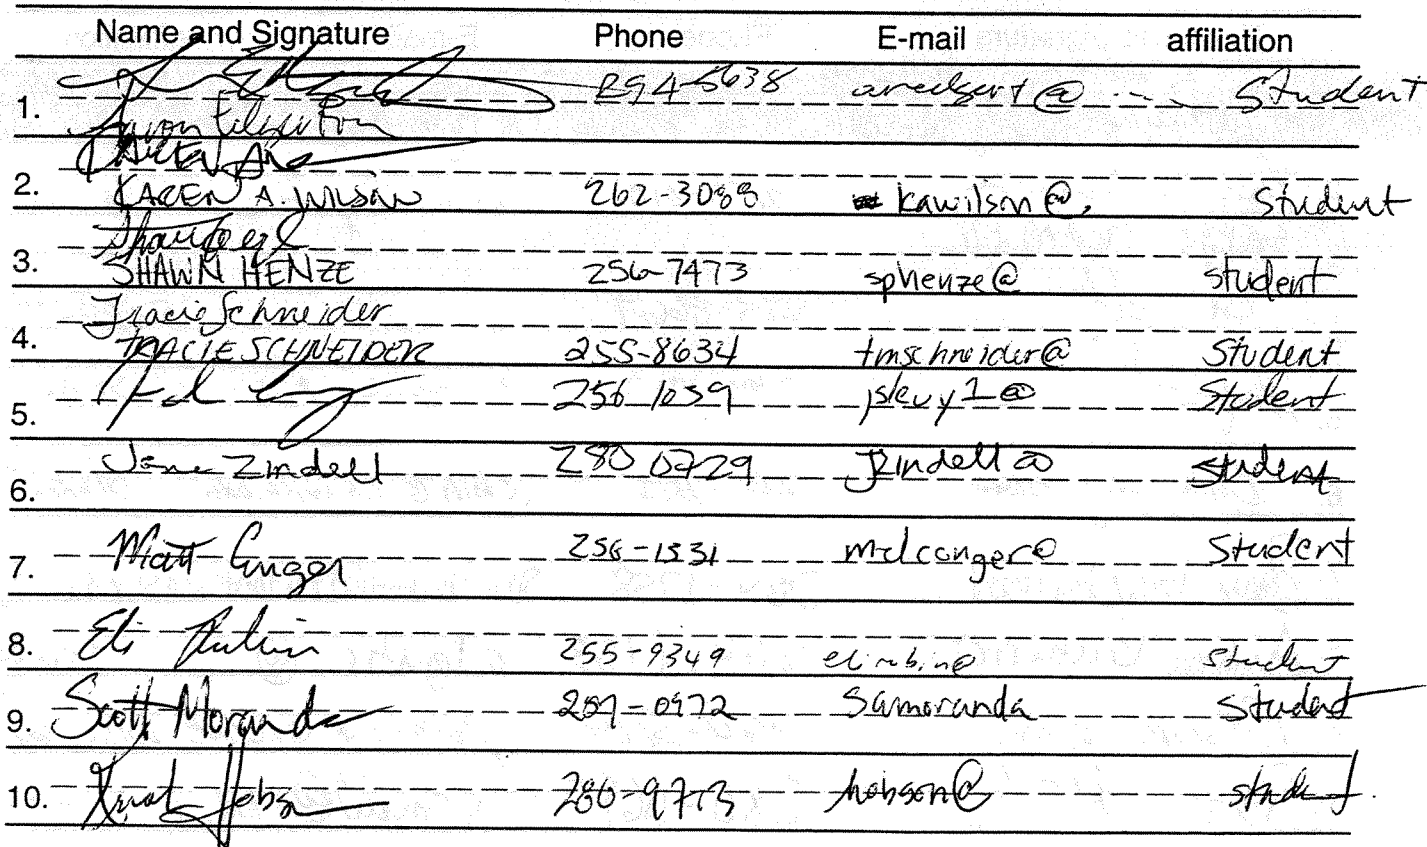 Name and Signature Phone E-mail affiliation
1. 294-5638 aredgert@ Student
2. KAREN A. WILSON 262-3088 kawilson@. Student
3. SHAWN HENZE 256-7473 sphenze@ student
Tracie Schneider
4. TRACIE SCHNEIDER 255-8634 tmschneider@ Student
5. 256 1059 jslevy1@ Student
6. Jane Zindell 280 0729 jzindell@ student
7. Matt Conger 256-1331 mdconger@ Student
8. Eli 255-9349 elirubin@ student
9. Scott Moranda 259-0972 samoranda student
10. 280-9713 hobson@ student